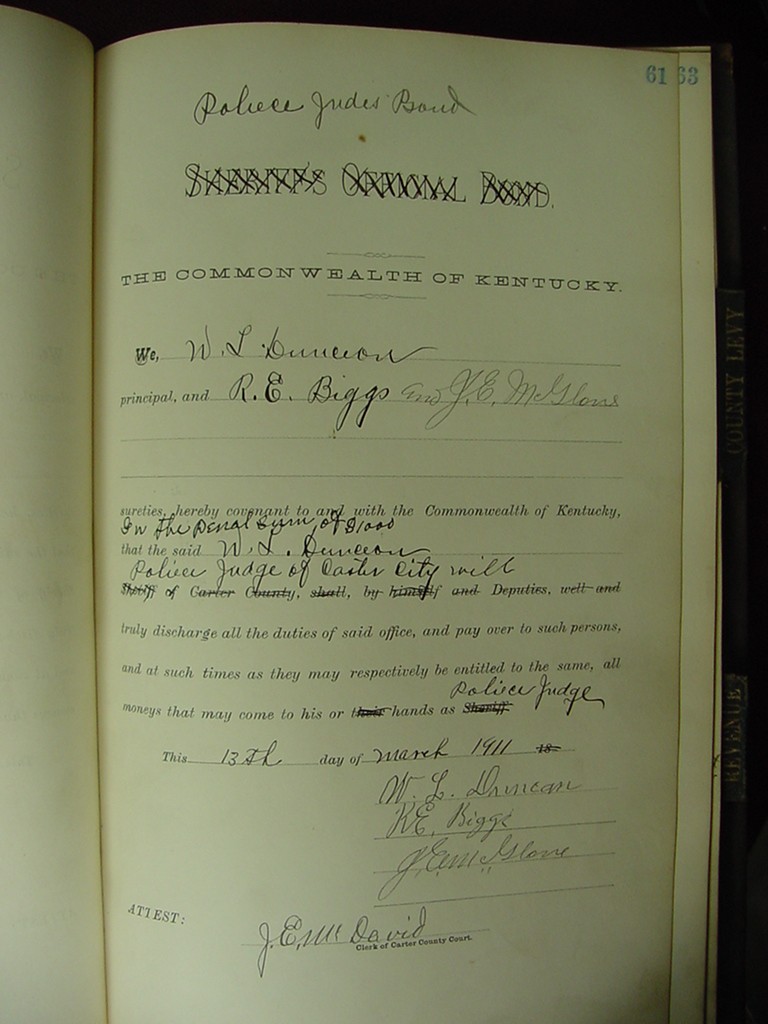 61 63
Poliece Judes Bond
SHERIFF'S OFFICIAL BOND.
THE COMMONWEALTH OF KENTUCKY.
We, W. L. Duncan
principal, and R. E. Biggs and J. E. McGlone
sureties, hereby covenant to and with the Commonwealth of Kentucky,
In the penal sum of $1000
that the said W. L. Duncan
Poliece Judge of Carter City will
Sheriff of Carter County, shall, by himself and Deputies, well and
truly discharge all the duties of said office, and pay over to such persons,
and at such times as they may respectively be entitled to the same, all
Poliece Judge
moneys that may come to his or their hands as Sheriff.
This 13th day of March 1911 18
W. L. Duncan
R E. Biggs
J. E. McGlone
ATTEST:
J. E. McDavid
Clerk of Carter County Court.
COUNTY LEVY
REVENUE